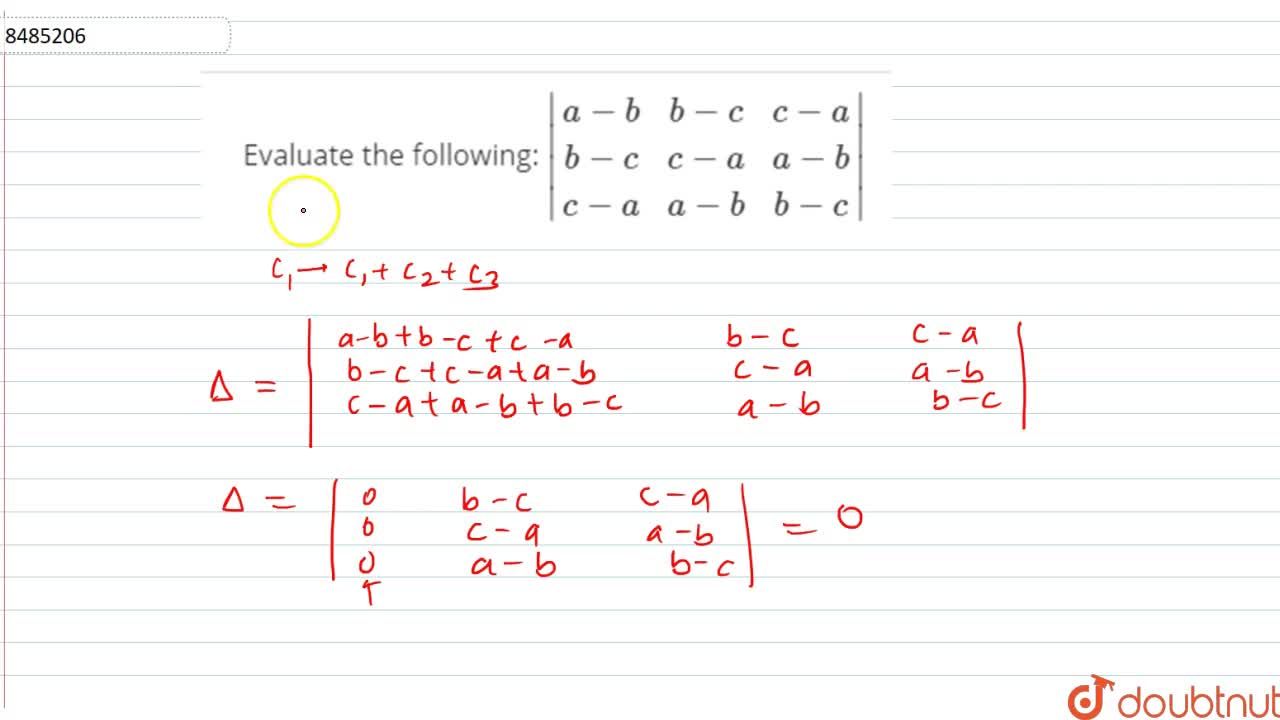 8485206
Evaluate the following: | a − b   b − c   c − a |
| b − c   c − a   a − b |
| c − a   a − b   b − c |
C₁ → C₁ + C₂ + C₃
| a-b+b-c+c-a   b-c   c-a |
Δ = | b-c+c-a+a-b   c-a   a-b |
| c-a+a-b+b-c   a-b   b-c |
Δ = | 0   b-c   c-a | = 0
| 0   c-a   a-b |
| 0   a-b   b-c |
↑
doubtnut